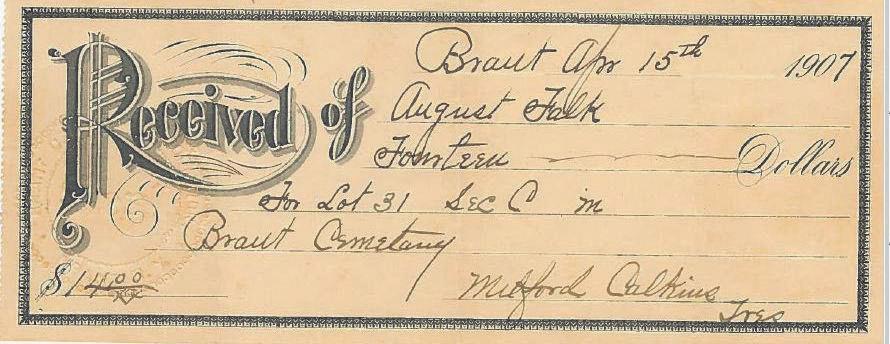 Brant Apr 15th 1907
Received of August Falk
Fourteen Dollars
For Lot 31 Sec C in
Brant Cemetary
$14.00
Milford Calkins
Tres